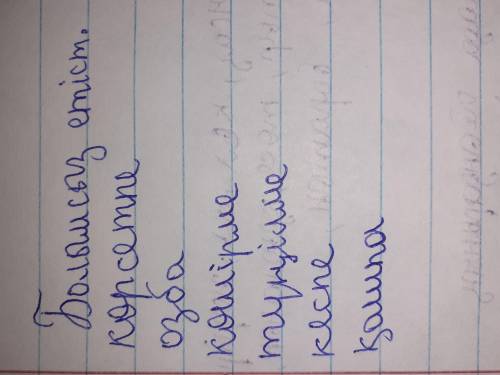 Болымсыз етіст.
көрсетпе
озба
көшірме
түңілме
кеспе
қашпа